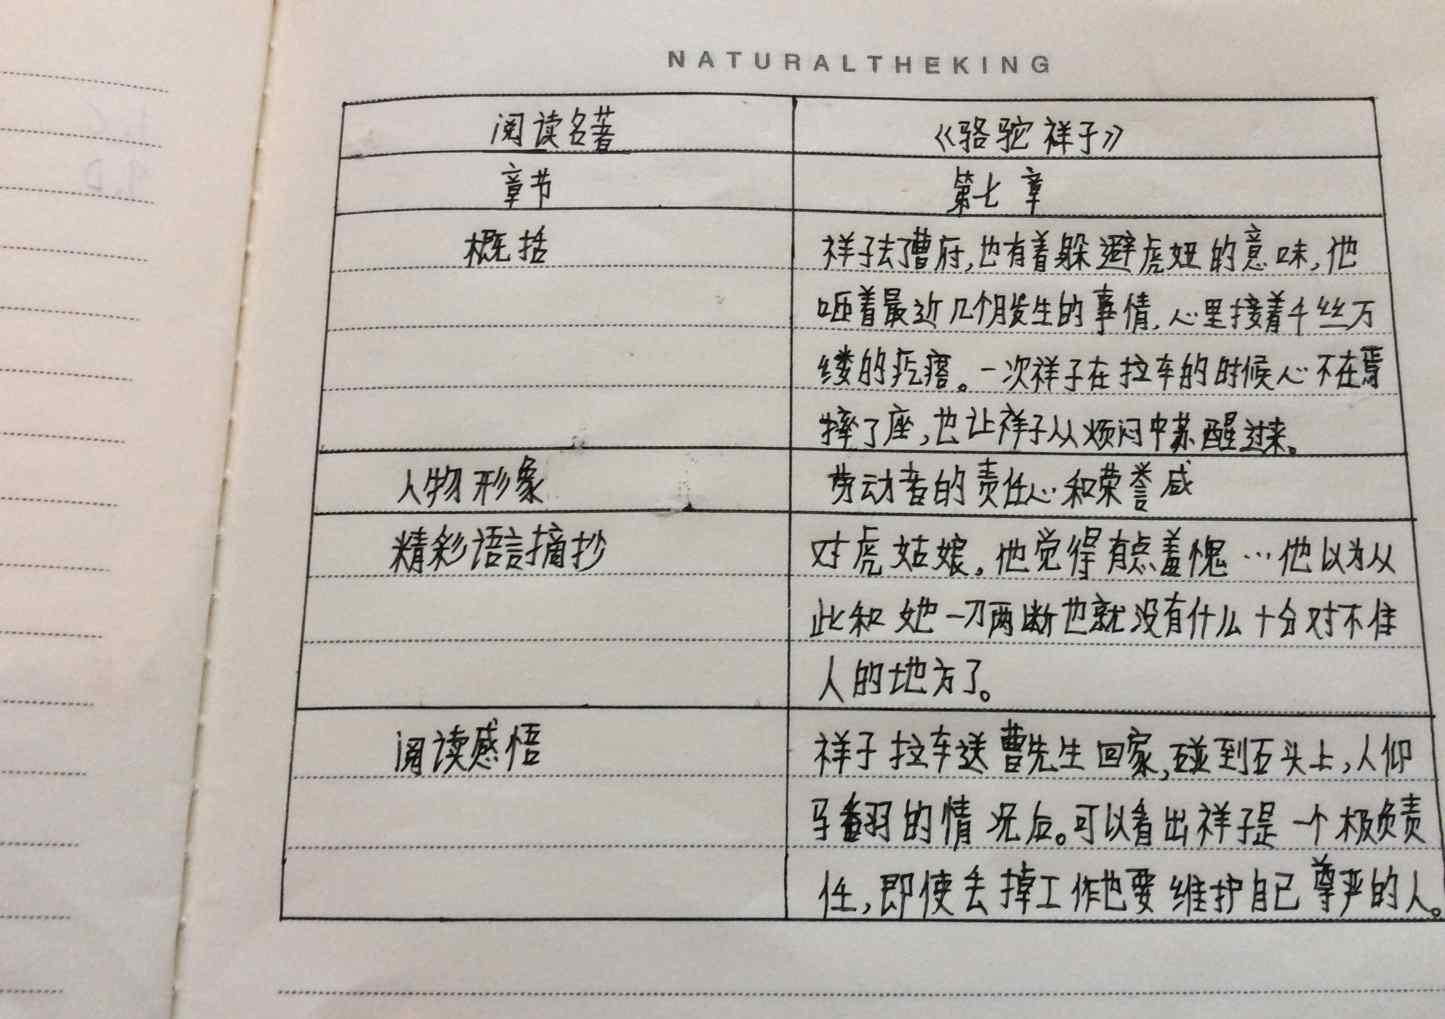 NATURALTHEKING
阅读名著 《骆驼祥子》
章节 第七章
概括 祥子去了曹府,也有着躲避虎妞的意味,他
咂着最近几个月发生的事情,心里接着千丝万
缕的疙瘩。一次祥子在拉车的时候心不在焉
摔了座,也让祥子从烦闷中苏醒过来。
人物形象 劳动者的责任心和荣誉感
精彩语言摘抄 对虎姑娘,他觉得有点羞愧…他以为从
此和她一刀两断也就没有什么十分对不住
人的地方了。
阅读感悟 祥子拉车送曹先生回家,碰到石头上,人仰
马翻的情况后。可以看出祥子是一个极负责
任,即使丢掉工作也要维护自己尊严的人。